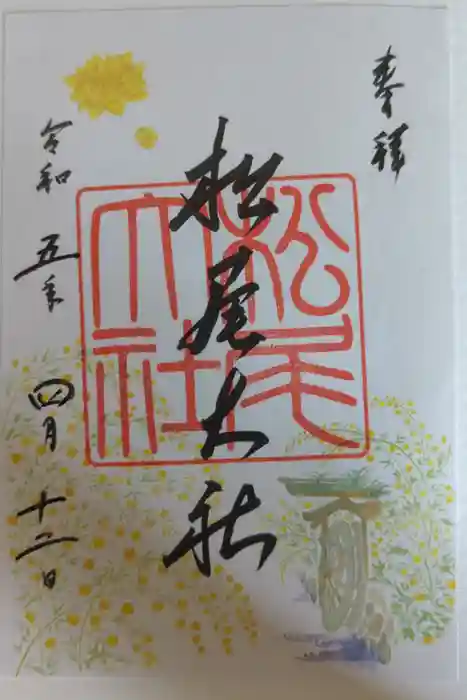 奉拝
松尾大社
松尾大社
令和五年
四月十二日